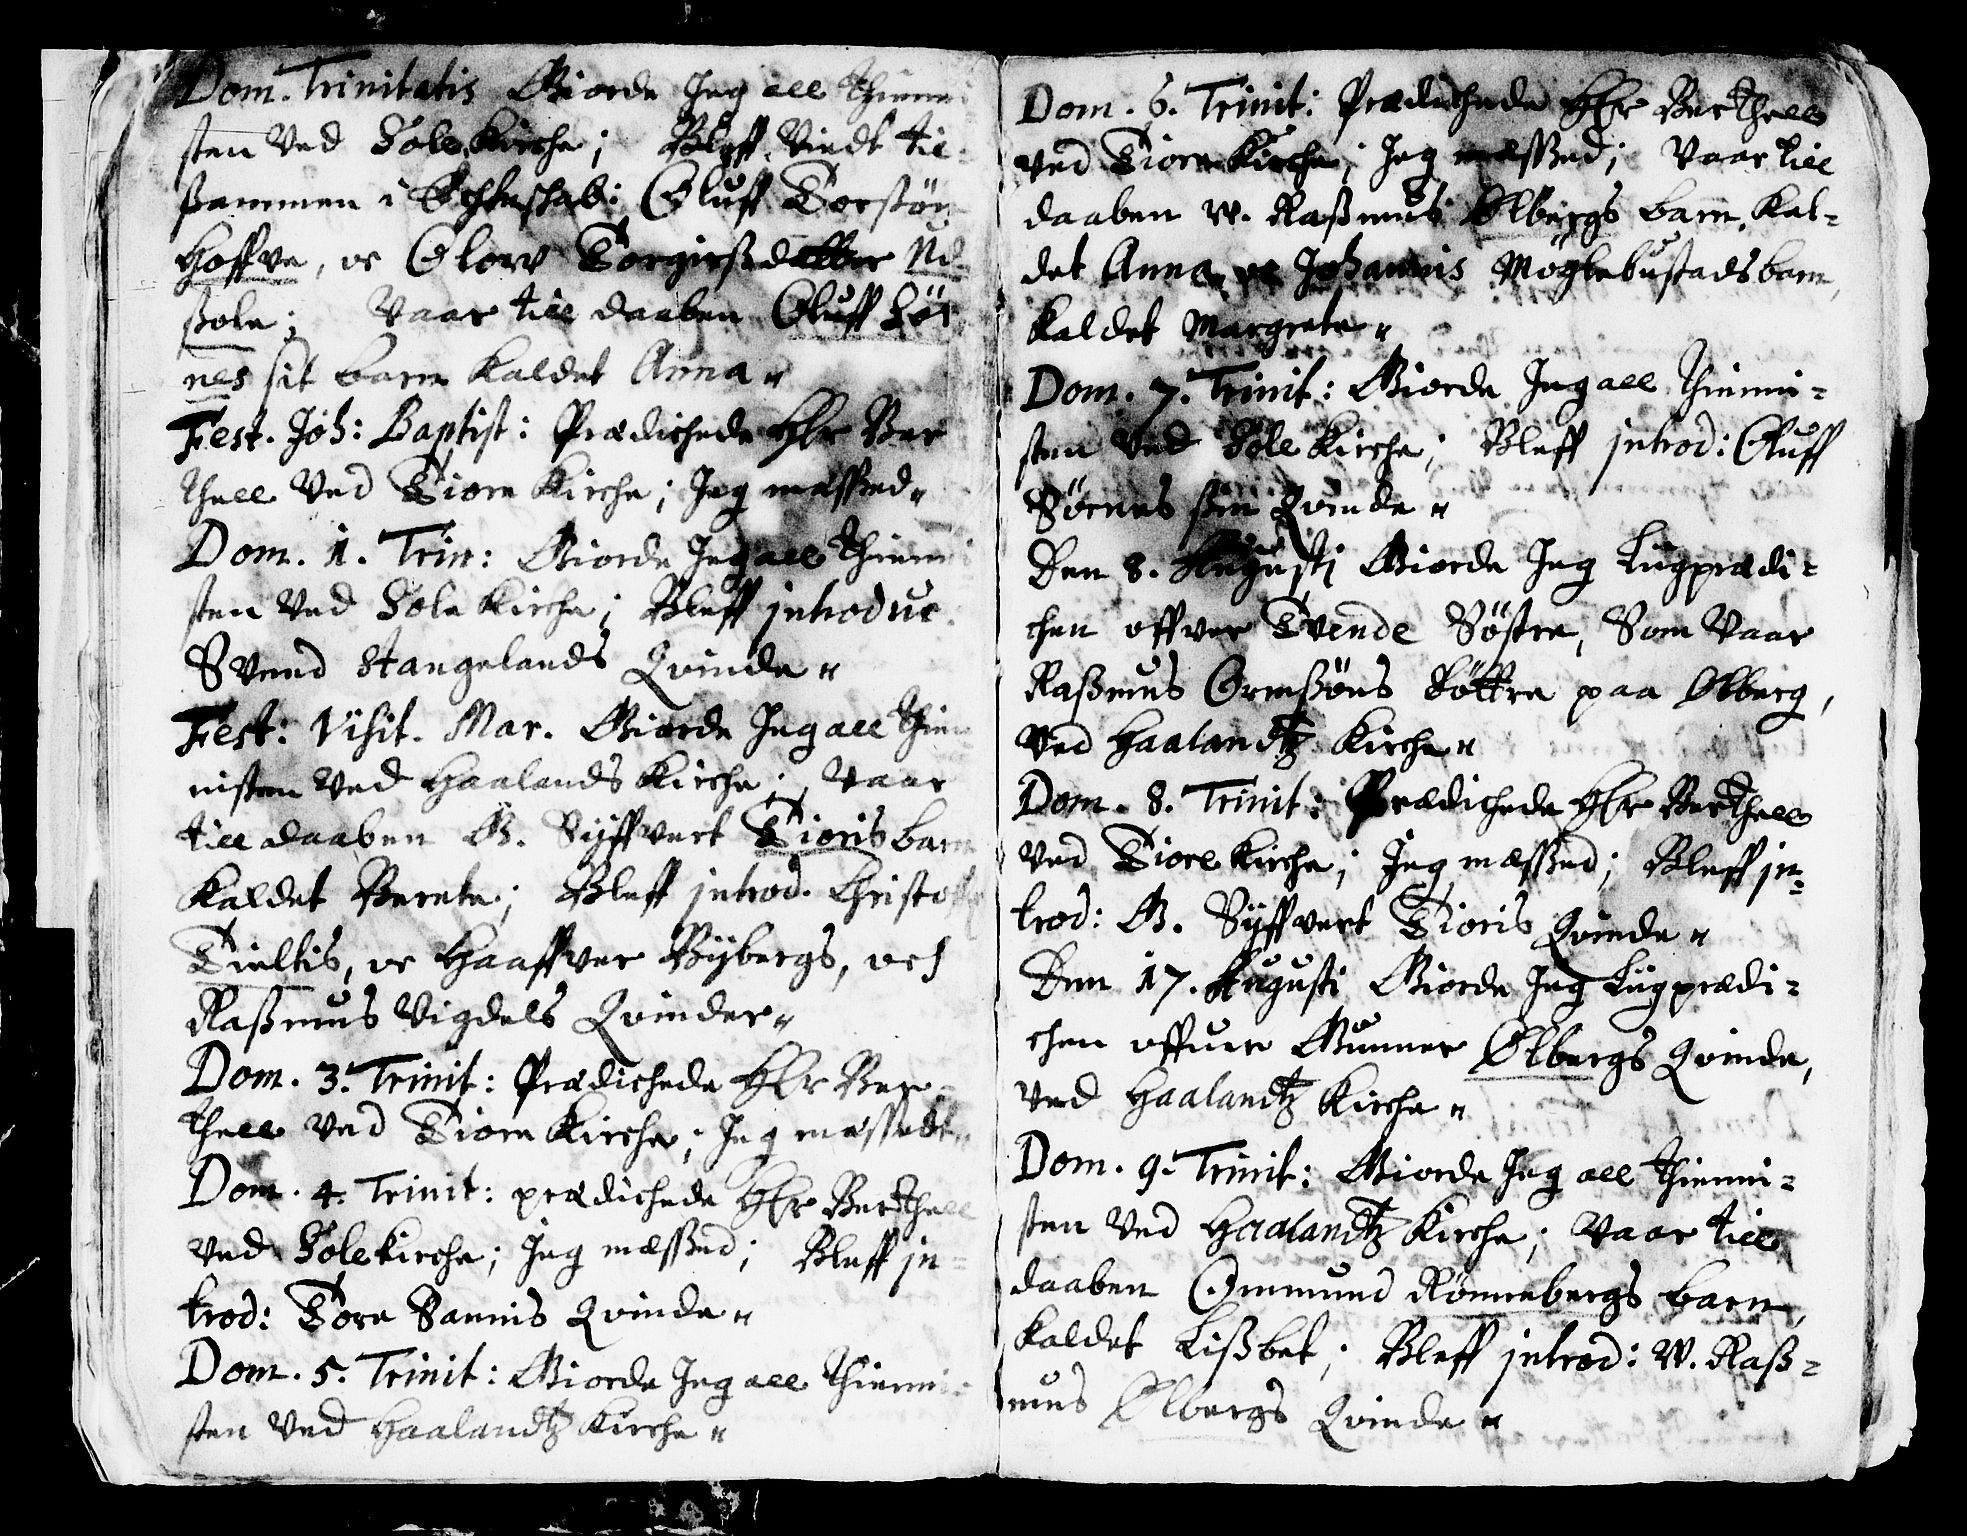 Dom. Trinitatis Giorde Jeg all Thienni
sten Ved Sole Kirche; Bleff Viedt til-
sammen i Echteskab: Oluff Torstön
Hoffve, oc Olow Torgierßdatter Nd-
ßole; Vaar till daaben Oluff Sör
nes sit barn Kaldet Anna"
Fest. Joh: Baptist: Prædichede HEr Ber
thell Ved Tiore Kirche; Jeg messed"
Dom. 1. Trin: Giorde Jeg all Thienni
sten Ved Sole Kirche; Bleff introduc.
Svend Stangelands Qvinde"
Fest: Visit. Mar. Giorde Jeg all Thien
nisten Ved Haalands Kirche; Vaar
till daaben G. Syffvert Tioris barn
Kaldet Berete; Bleff introd. Christo
Tieltis, oc Haaffver Bybergs, och
Raßmus Vigdels Qvinder"
Dom. 3. Trinit: Prædichede HEr Ber-
thell Ved Tiore Kirche; Jeg messedt"
Dom. 4. Trinit: prædichede HEr Berthell
Ved Solekirche; Jeg messed; Bleff in-
trod: Tore Sannis Qvinde"
Dom. 5. Trinit: Giorde Jeg all Thienni-
sten Ved Haalandtz Kirche"
Dom. 6. Trinit: Prædichede HEr Berthell
Ved Tiore Kirche; Jeg messed; Vaar till
daaben W. Raßmus Ølbergs barn, Kal-
det Anna, oc Johannis Möglebustads barn,
Kaldet Margrete"
Dom. 7. Trinit: Giorde Jeg all Thienni-
sten Ved Sole Kirche; Bleff introd: Oluff
Sörnes sin Qvinde"
Den 8. Augusti Giorde Jeg Liigprædi-
chen offver Tvende Söstre, Som Vaar
Raßmus Ormßöns Döttre paa Ølberg,
Ved Haalandtz Kirche"
Dom. 8. Trinit: Prædichede HEr Berthell
Ved Tiore Kirche; Jeg messed; Bleff in-
trod: G. Syffvert Tioris Qvinde"
Den 17. Augusti Giorde Jeg Liigprædi-
chen offuer Gunner Ølbergs Qvinde,
Ved Haalandtz Kirche"
Dom. 9. Trinit: Giorde Jeg all Thienni-
sten Ved Haalandtz Kirche; Vaar till
daaben Ommund Rönnebergs barn,
Kaldet Lißbet; Bleff introd: W. Raß-
mus Ølbergs Qvinde"